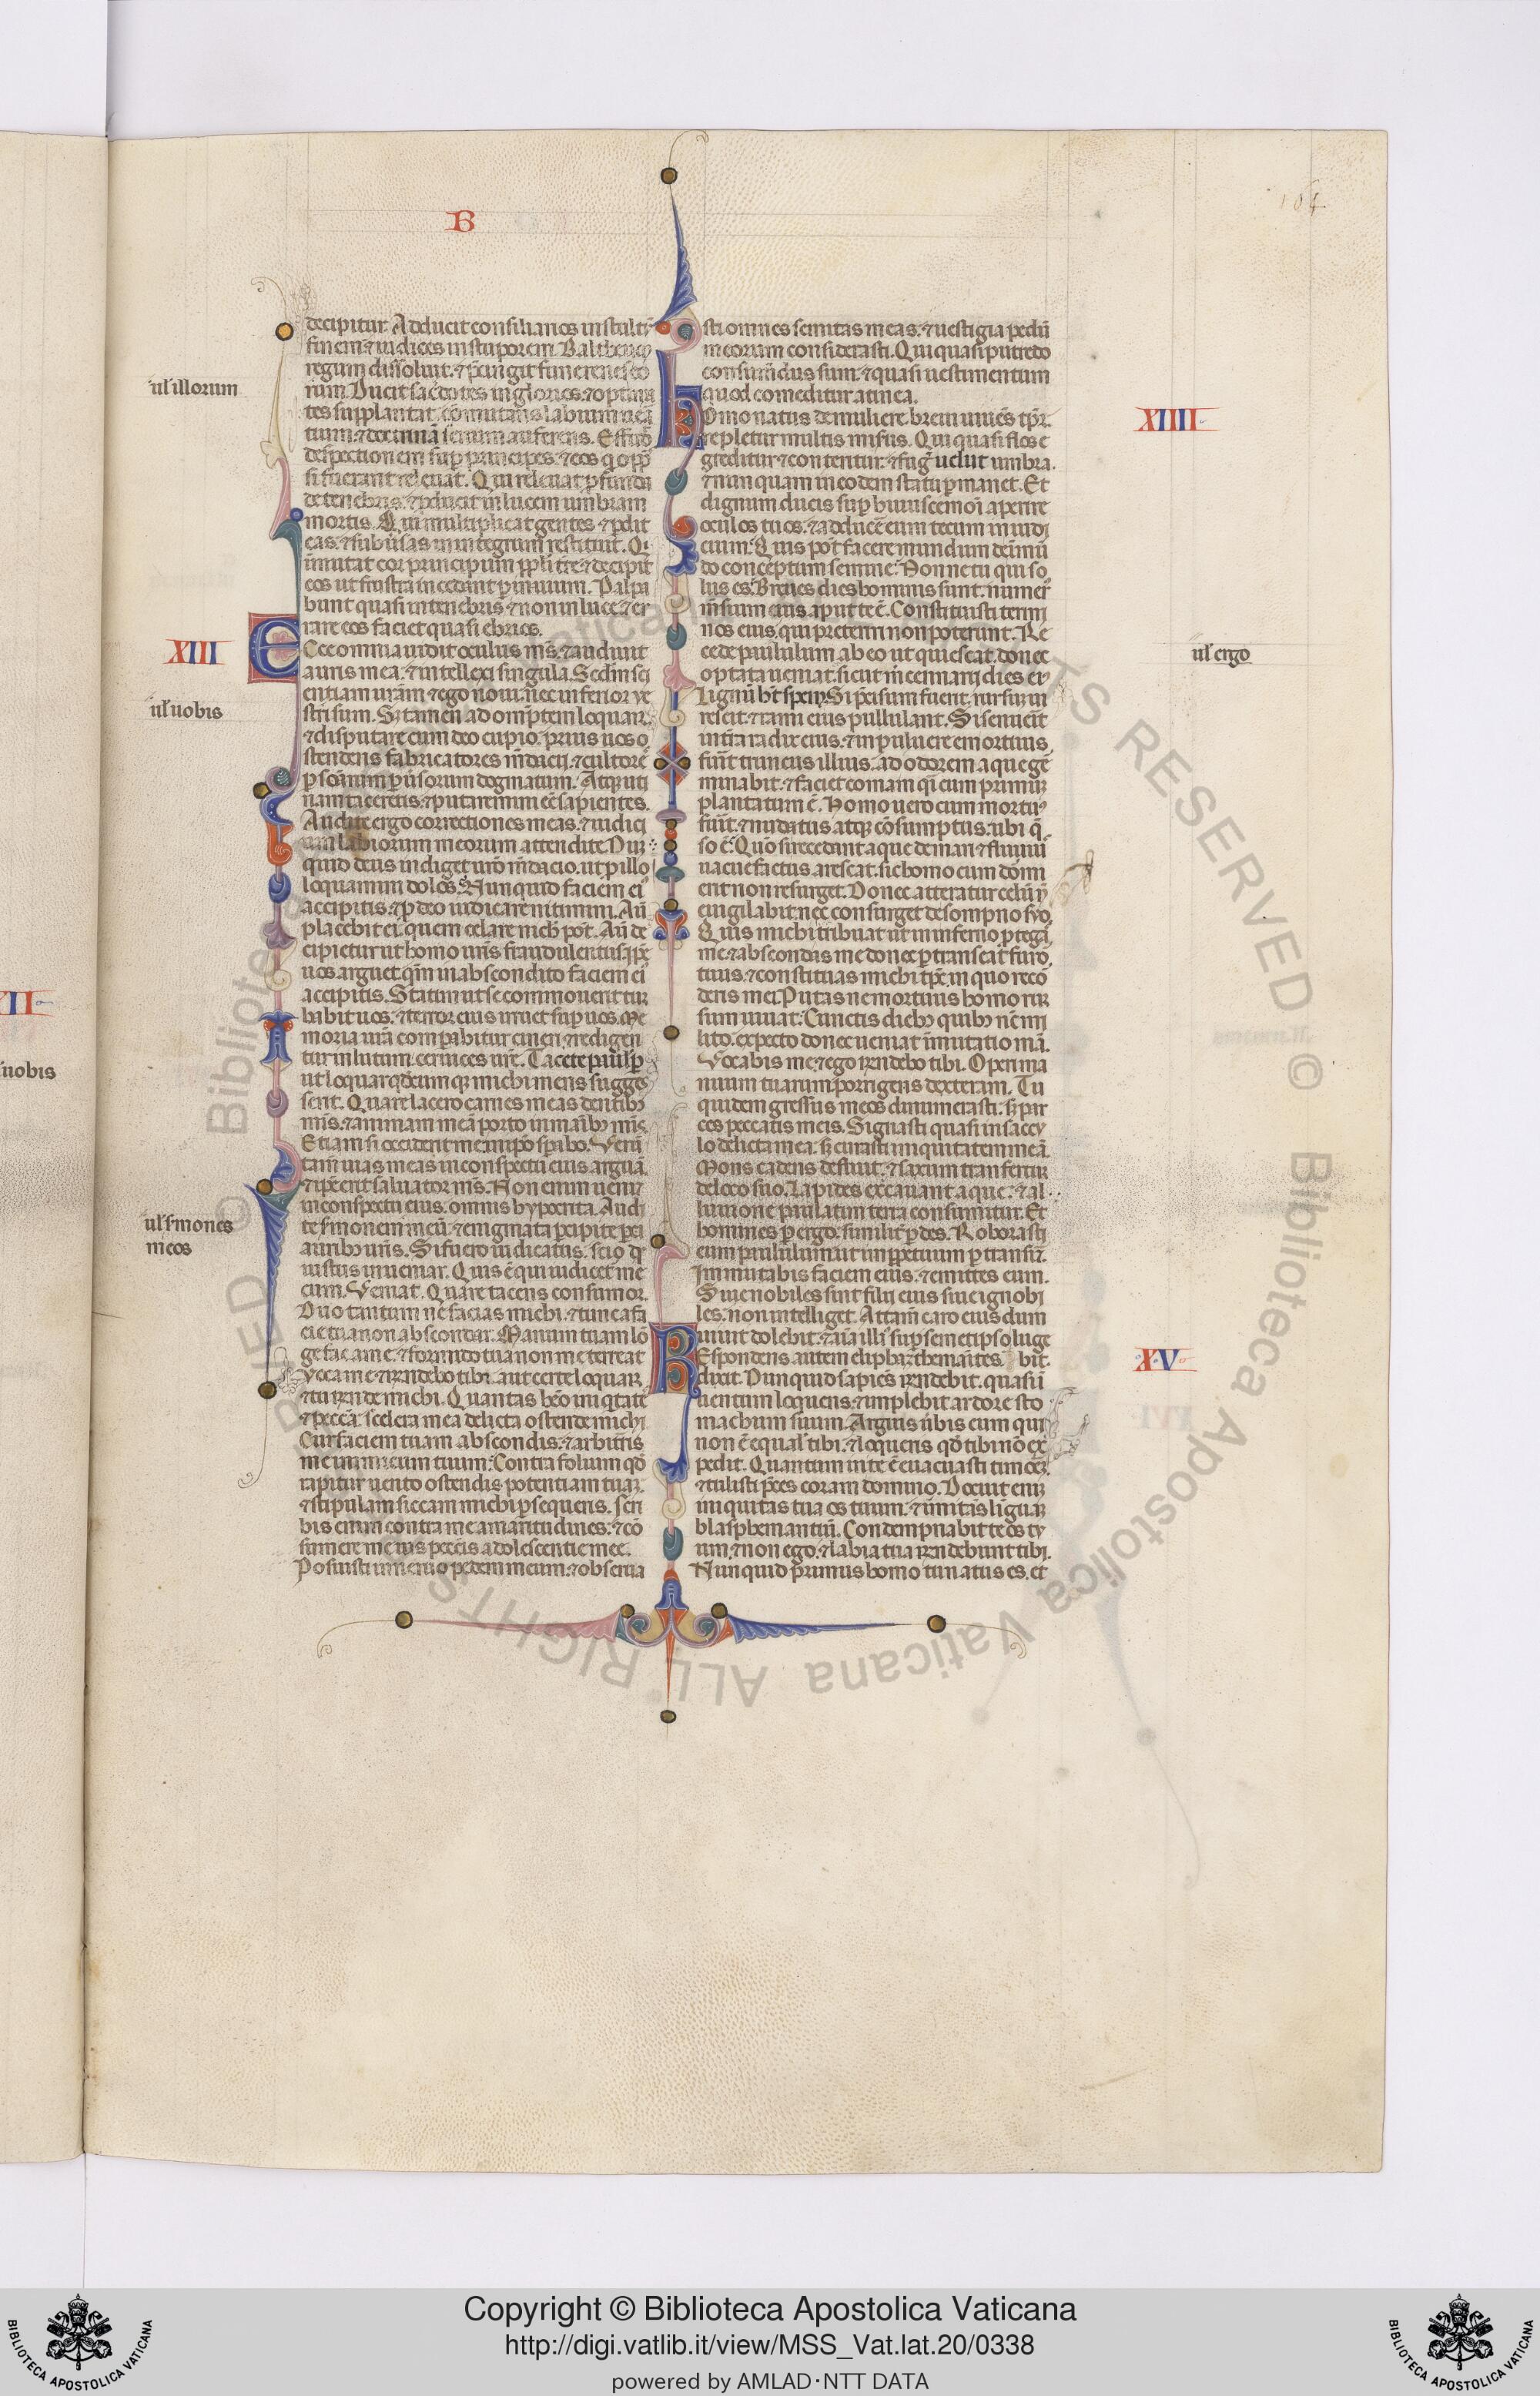 B
164
decipitur. Adducit consiliarios in stultū
finem: ⁊ iudices in stuporem. Baltheum
regum dissoluit. ⁊ p̄cingit fune renes eo
rum. Ducit sac̄dotes inglorios. ⁊ optima
tes supplantat. cōmutans labium uera
tium: ⁊ doctrinā senum auferens. Effūd̄
despectionem sup̱ principes. ⁊ eos q̇ opp̄
si fuerant releuat. Qui reuelat ꝓfunda
de tenebris. ⁊ ꝓducit in lucem umbram
mortis. Qui multiplicat gentes ⁊ ꝑdit
eas. ⁊ subūsas in integrum restituit. Qi
īmutat cor principum ppl̄i tr̄e. ⁊ decipit
eos ut frustra incedant ꝑ inuium. Palpa
bunt quasi in tenebris ⁊ non in luce. ⁊ er
rare eos faciet quasi ebrios.
Ecce omnia uidit oculus m̄s. ⁊ audiuit
auris mea. ⁊ intellexi singula. Scdm̄ sci
entiam ur̄am ⁊ ego noui. nec inferior ue
stri sum. Sꝫ tamen ad omp̄tem loquar.
⁊ disputare cum deo cupio. prius uos o
stendens fabricatores m̄dacij. ⁊ cultore᷒
ꝑuersorum dogmatum. Atqꝫ uti
nam taceretis. ⁊ putaremini eē sapientes.
Audite ergo correctiones meas. ⁊ iudici
um labiorum meorum attendite. Nūꝫ
quid deus indiget ur̄o m̄dacio. ut ꝓ illo
loquamini dolos. Nunquid faciem ei᷒
accipitis. ⁊ ꝓ deo iudicare nitimini. Aū
placebit ei. quem celare nichl̄ pōt. Aū de
cipietur ut homo ur̄is fraudulentiis. ip̄e
uos arguet. qm̄ in abscondito faciem ei᷒
accipitis. Statim ut se commouerit tur
babit uos. ⁊ terror eius irruet sup̱ uos. Me
moria ur̄a compabitur cineri. ⁊ redigen
tur in lutum ceruices ur̄e. Tacete paulisꝑ
ut loquar qdcumqꝫ michi mens sugges
serit. Quare lacero carnes meas dentibꝫ
m̄is. ⁊ animam meā porto in manibꝫ m̄is.
Etiam si occiderit me. in ipō sꝑabo. Verū
tam̄ uias meas in conspectu eius arguā.
⁊ ip̄e erit saluator m̄s. Non enim ueniet
in conspectu eius. omnis hypocrita. Audi
te s̄monem meū. ⁊ enigmata percipite
auribꝫ ur̄is. Si fuero iudicatus. scio qd̄
iustus inueniar. Quis ē qui iudicet me
cum. Veniat. Quare tacens consumor.
Duo tantum ne facias michi. ⁊ tunc a fa
cie tua non abscondar. Manum tuam lō
ge fac a me. ⁊ formido tua non me terreat
Voca me ⁊ r̄ndebo tibi. aut certe loquar.
⁊ tu r̄nde michi. Quantas hēo iniq̇tate᷒
⁊ peccā. scelera mea ⁊ delicta ostende michi
Cur faciem tuam abscondis. ⁊ arbitris
me inimicum tuum. Contra folium qd̄
rapitur uento ostendis potentiam tuaꝫ.
⁊ stipulam siccam michi ꝑsequeris. scri
bis enim contra me amaritudines. ⁊ cō
sumere me uis peccis adolescentie mee.
Posuisti in neruo pedem meum. ⁊ obserua
sti omnes semitas meas. ⁊ uestigia pedū
meorum considerasti. Qui quasi putredo
consumdus sum. ⁊ quasi uestimentum
quod comeditur a tinea.
Homo natus de muliere. breui uiuēs tp̄r.
repletur multis mis̄ius. Qui quasi flos e
greditur ⁊ conteritur. ⁊ fuḡ uelut umbra.
⁊ nunquam in eodem statu ꝑmanet. Et
dignum ducis sup̱ huiuscemōi aperire
oculos tuos. ⁊ adducē eum tecum in iudi
cium. Quis pōt facere mundum de īmū
do conceptum semine. Nonne tu qui so
lus es. Breues dies hominis sunt. numer᷒
m̄sium eius aput te ē. Constituisti termi
nos eius. qui preteriri non poterunt. Re
cede paululum ab eo ut quiescat. donec
optata ueniat. sicut m̄cennarij dies ei᷒
Lignū ht̄ spem. Si p̄cisum fuerit. rursum ui
rescit. ⁊ rami eius pullulant. Si senuerit
in tr̄a radix eius. ⁊ in puluere emortuus
fuerit truncus illius. ad odorem aque ger
minabit. ⁊ faciet comam q̄i cum primum
plantatum ē. Homo uero cum mortu᷒
fuerit. ⁊ nudatus atqꝫ cōsumptus. ubi q̄
so ē. Quō si recedant aque de mari. ⁊ fluuiꝰ
uacuefactus arescat. sic homo cum dormi
erit non resurget. Donec atteratur celū n̄
euigilabit. nec consurget de sompno suo.
Quis michi tribuat ut in inferno ꝓtegas
me. ⁊ abscondas me donec ꝑtranseat furor
tuus. ⁊ constituas michi tp̄s. in quo recor
deris mei. Putas ne mortuus homo rur
sum uiuat. Cunctis diebꝫ quibꝫ nc̄ mi
lito. expecto donec ueniat immutatio mā.
Vocabis me. ⁊ ego r̄ndebo tibi. Operi ma
nuum tuarum porriges dexteram. Tu
quidem gressus meos dinumerasti. sꝫ par
ces peccatis meis. Signasti quasi in saccu
lo delicta mea. sꝫ curasti iniquitatem meā.
Mons cadens defluit. ⁊ saxum transfertur
de loco suo. Lapides excauant aque. ⁊ al
luuione paulatim terra consumitur. Et
homines ꝑ ergo. similit̄ ꝑdes. Roborasti
eum paululum ut inperpetuum ꝑtransir̄.
Immutabis faciem eius. ⁊ emittes eum.
Siue nobiles sint filij eius siue ignobi
les. non intelliget. Attam̄ caro eius dum
uiuit dolebit. ⁊ aīa illi᷒ sup̱ semetipso luge
Respondens autem eliphaz themanites. bit.
dixit. Nunquid sapiens r̄ndebit. quasi ī
uentum loquens. ⁊ implebit ardore sto
machum suum. Arguis ūbis eum qui
non ē equal᷒ tibi. ⁊ loqueris qd̄ tibi nō ex
pedit. Quantum in te ē euacuasti timorē.
⁊ tulisti p̄ces coram domino. Docuit enim
iniquitas tua os tuum. ⁊ imitaris linguaꝫ
blasphemantiū. Condempnabit te os tu
um. ⁊ non ego. ⁊ labia tua r̄ndebunt tibi.
Nunquid primus homo tu natus es. et
ul' illorum
XIII
ul' uobis
ul' s̄mones
meos
XII
uobis
XIIII
ul' ergo
XV
Copyright © Biblioteca Apostolica Vaticana
http://digi.vatlib.it/view/MSS_Vat.lat.20/0338
powered by AMLAD·NTT DATA
BIBLIOTECA APOSTOLICA VATICANA
BIBLIOTECA APOSTOLICA VATICANA
© Biblioteca Apostolica Vaticana ALL RIGHTS RESERVED © Biblioteca Apostolica Vaticana ALL RIGHTS RESERVED